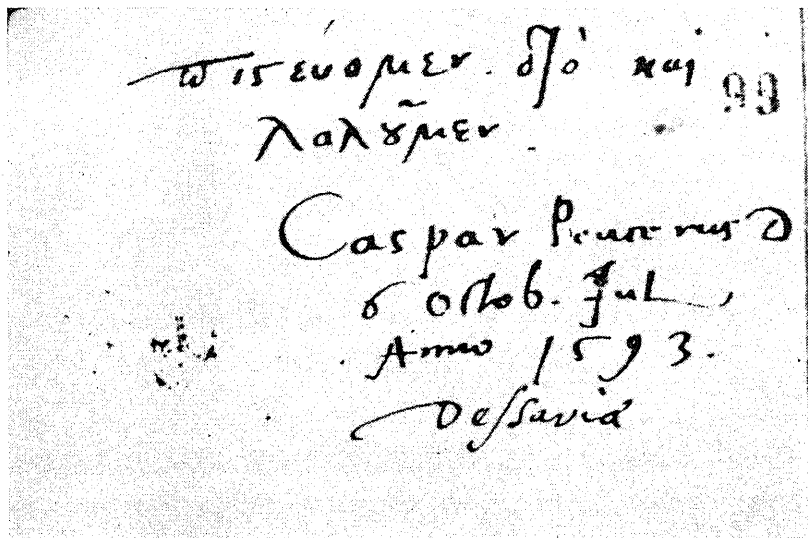 πιστεύομεν. διὸ καὶ
λαλοῦμεν.
99
Caspar Peucerus D
6 Octob. Jul,
Anno 1593.
Dessaviae